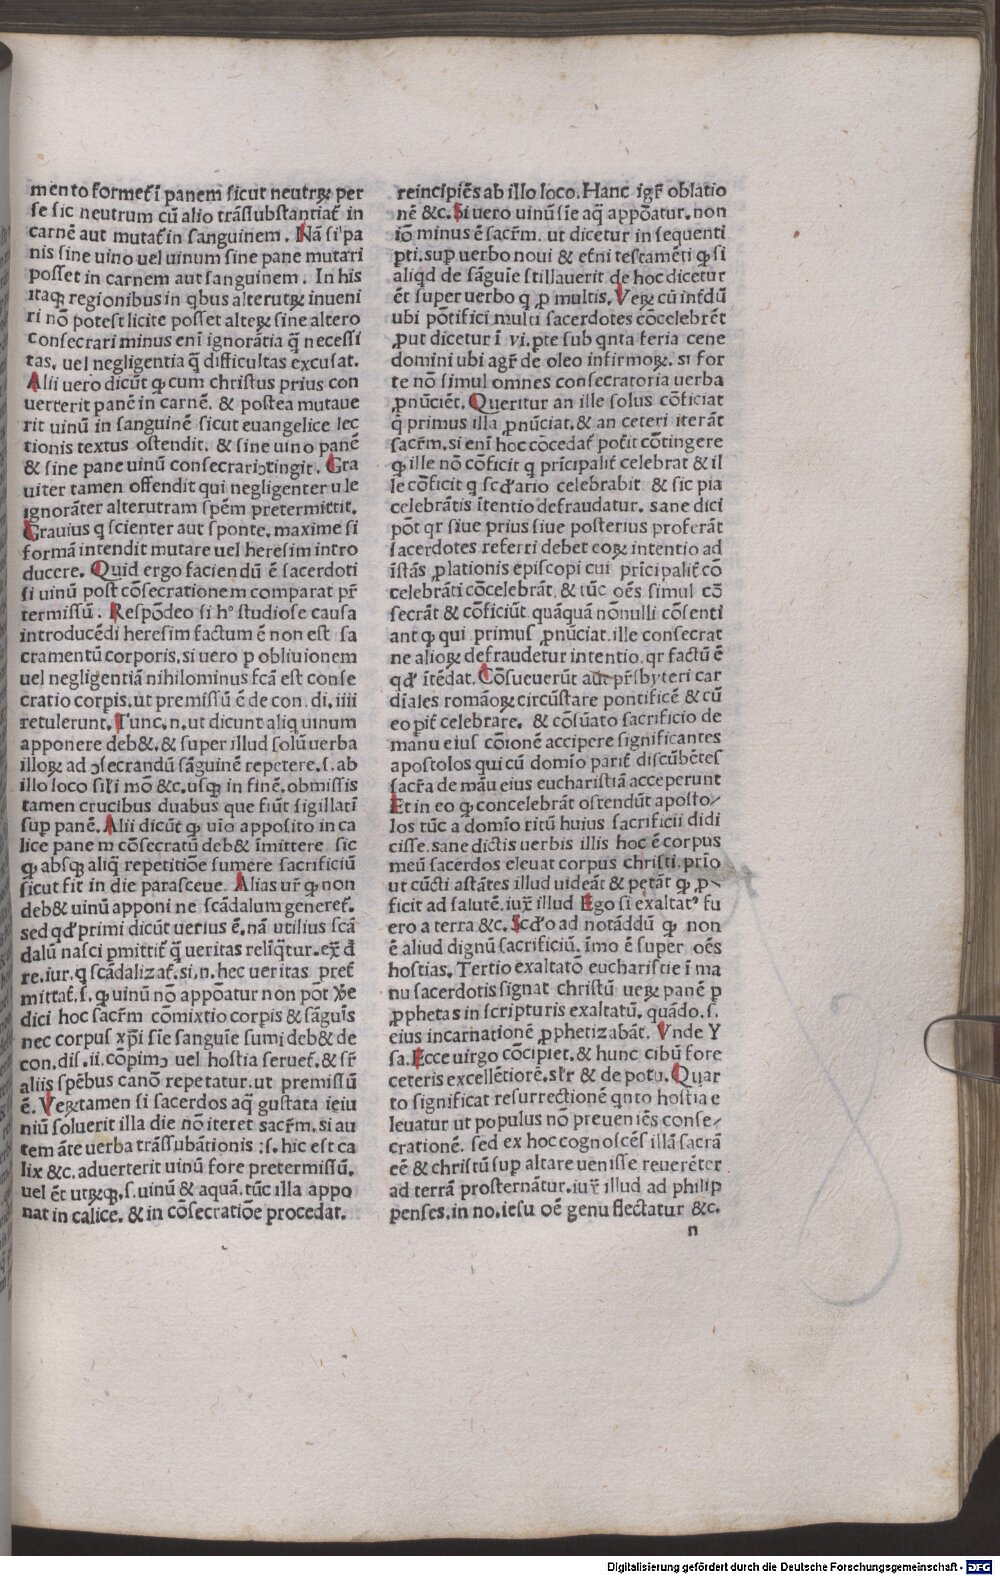 mento formet᷒ ī panem sicut neutrꝝ per
se sic neutrum cū alio trāssubstantiat᷒ in
carnē aut mutat᷒ in sanguinem. Nā si pa
nis sine uino uel uinum sine pane mutari
posset in carnem aut sanguinem. In his
itaqꝫ regionibus in qbus alterutꝝ inueni
ri nō potest licite posset alteꝝ sine altero
consecrari minus enī ignorātia q̄ necessi
tas, uel negligentia q̄ difficultas excusat.
Alii uero dicūt ꝙ cum christus prius con
uerterit panē in carnē. & postea mutaue
rit uinū in sanguinē sicut euangelice lec
tionis textus ostendit. & sine uino panē
& sine pane uinū consecrariↄtingit. Gra
uiter tamen offendit qui negligenter u le
ignorāter alterutram spēm pretermittit.
Grauius q scienter aut sponte. maxime si
formā intendit mutare uel heresim intro
ducere. Quid ergo faciendū ē sacerdoti
si uinū post cōsecrationem comparat pr̄
termissū. Respōdeo si h° studiose causa
introducēdi heresim factum ē non est sa
cramentū corporis, si uero p obliuionem
uel negligentiā nihilominus fcā est conse
cratio corpis. ut premissū ē de con. di. iiii
retulerunt. Tunc. n. ut dicunt aliq uinum
apponere deb&. & super illud solū uerba
illoꝝ ad ↄsecrandū sāguinē repetere. s. ab
illo loco sil̄i mō &c. usqꝫ in finē. obmissis
tamen crucibus duabus que fiūt sigillatī
sup panē. Alii dicūt ꝙ uīo apposito in ca
lice pane m cōsecratū deb& īmittere sic
ꝙ absqꝫ aliq̄ repetitiōe sumere sacrificiū
sicut fit in die parasceue. Alias ur̄ ꝙ non
deb& uinū apponi ne scādalum generet᷒.
sed qd̕ primi dicūt uerius ē. nā utilius scā
dalū nasci pmittit᷒ q̄ ueritas reliq̄tur. ex̄ d̄
re. iur. q scādalizat᷒. si. n. hec ueritas pret᷒
mittat᷒. s. ꝙ uinū nō appōatur non pōt v̕e
dici hoc sacr̄m cōmixtio corpis & sāguīs
nec corpus xp̄i sīe sanguīe sumi deb& de
con. dis. ii. cōpimↄ uel hostia seruet᷒. & sr̄
aliis spēbus canō repetatur. ut premissū
ē. Veꝝtamen si sacerdos aq̄ gustata ieiu
niū soluerit illa die nō iteret sacr̄m. si au
tem āte uerba trāssubātionis :s. hic est ca
lix &c. aduerterit uinū fore pretermissū.
uel ēt utꝝqꝫ. s. uinū & aquā. tūc illa appo
nat in calice. & in cōsecratiōe procedat.
reincipiēs ab illo loco. Hanc igr̄ oblatio
nē &c. Si uero uinū sīe aq̄ appōatur. non
iō minus ē sacr̄m. ut dicetur in sequenti
pti. sup uerbo noui & et̄ni testamēti ꝙ si
aliqd de sāguīe stillauerit de hoc dicetur
ēt super uerbo q ꝓ multis. Veꝝ cū int̄dū
ubi pōtifici multi sacerdotes cōcelebrēt
ꝓut dicetur ī vi. pte sub qnta feria cene
domini ubi agr̄ de oleo infirmoꝝ. si for
te nō simul omnes consecratoria uerba
ꝓnūciēt. Queritur an ille solus cōficiat
q̄ primus illa ꝓnūciat. & an ceteri iterāt
sacr̄m. si enī hoc cōcedat᷒ pot̄it cōtingere
ꝙ ille nō cōficit q prīcipalit᷒ celebrat & il
le cōficit q scd̕ario celebrabit & sic pia
celebrātis ītentio defraudatur. sane dici
pōt qr siue prius siue posterius proferāt
sacerdotes referri debet eoꝝ intentio ad
īstās ꝓlationis episcopi cui prīcipalit᷒ cō
celebrāti cōcelebrāt. & tūc oēs simul cō
secrāt & cōficiūt. quāquā nōnulli cōsenti
ant ꝙ qui primus ꝓnūciat. ille consecrat
ne alioꝝ defraudetur intentio. qr factū ē
qd̕ ītēdat. Cōsueuerūt aūt pr̄sbyteri car
dīales romāoꝝ circūstare pontificē & cū
eo pit᷒ celebrare. & cōsūato sacrificio de
manu eius cōionē accipere significantes
apostolos qui cū domīo parit᷒ discūbētes
sacr̄a de māu eius eucharistiā acceperunt
Et in eo ꝙ concelebrāt ostendūt aposto⸗
los tūc a domīo ritū huius sacrificii didi
cisse. sane dictis uerbis illis hoc ē corpus
meū sacerdos eleuat corpus christi. prīo
ut cūcti astātes illud uideāt & petāt ꝙ ꝓ⸗
ficit ad salutē. iux̄ illud Ego si exaltatꝰ fu
ero a terra &c. Scd̕o ad notāddū ꝙ non
ē aliud dignū sacrificiū. īmo ē super oēs
hostias. Tertio exaltatō eucharistie ī ma
nu sacerdotis signat christū ueꝝ panē ꝑ
ꝓphetas in scripturis exaltatū. quādo. s.
eius incarnationē ꝓphetizabāt. Vnde Y
sa. Ecce uirgo cōcipiet. & hunc cibū fore
ceteris excellētiorē. sl̄r & de potu. Quar
to significat resurrectionē qnto hostia e
leuatur ut populus nō preueniēs conse⸗
crationē. sed ex hoc cognoscēs illā sacrā
eē & christū sup altare uenisse reuerēter
ad terrā prosternātur. iux̄ illud ad philip
penses. in no. iesu oē genu flectatur &c.
n
Digitalisierung gefördert durch die Deutsche Forschungsgemeinschaft - DFG